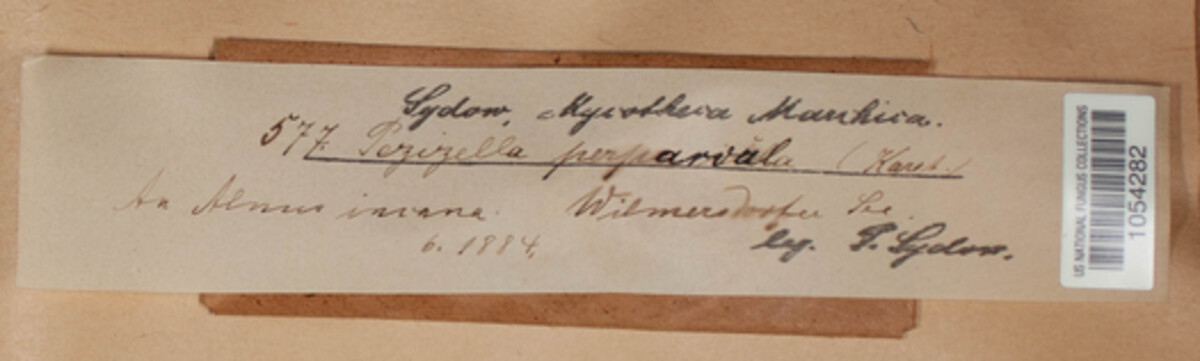 Sydow, Mycotheca Marchica.
577. Pezizella perparvula (Karst.)
An Alnus incana. Wilmersdorfer See.
6. 1884.
leg. P. Sydow.
US NATIONAL FUNGUS COLLECTIONS
1054282